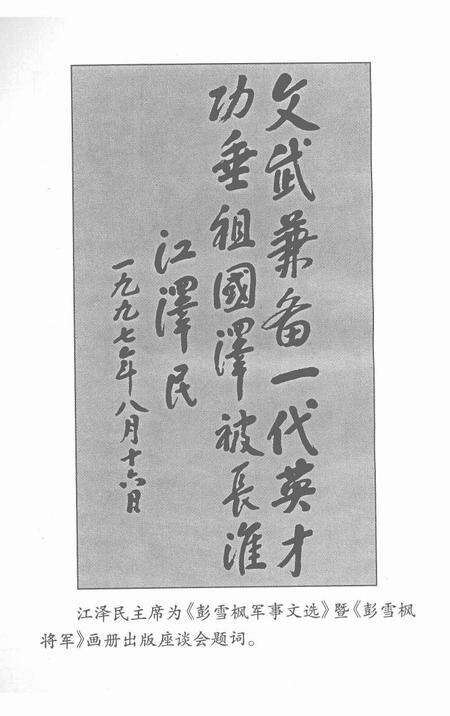 文武兼备一代英才
功垂祖國澤被長淮
江澤民
一九九七年八月十六日
江泽民主席为《彭雪枫军事文选》暨《彭雪枫
将军》画册出版座谈会题词。